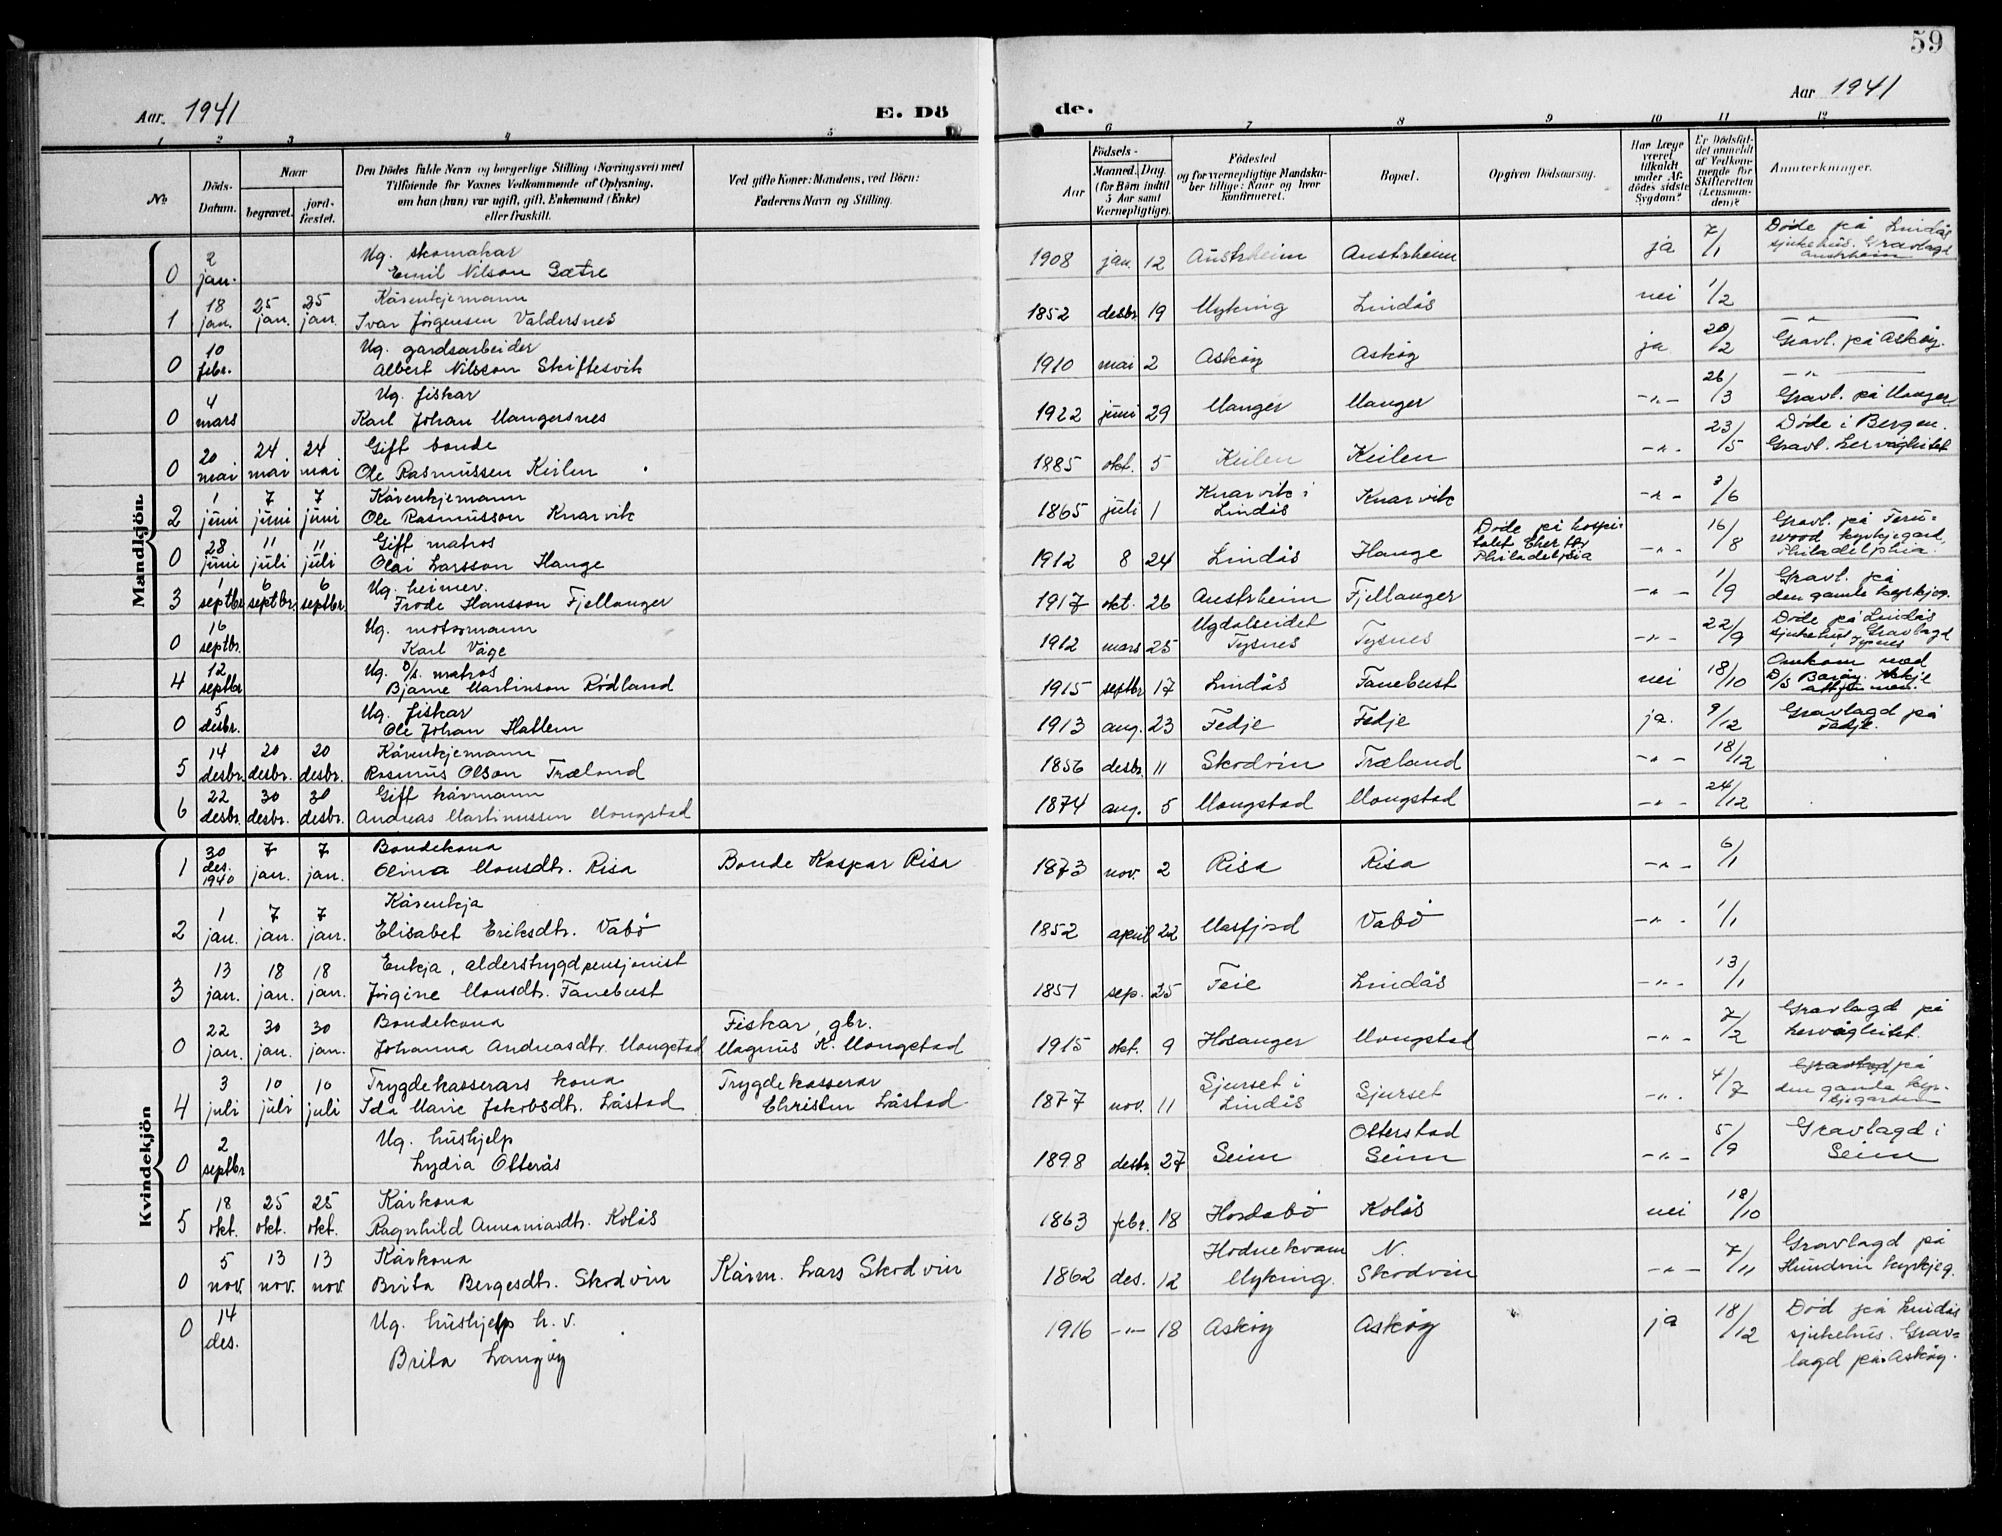 59
Aar 1941 E. Dö de. Aar 1941
1 2 3 4 5 6 7 8 9 10 11 12
No
Döds-Datum.
Naar
begravet. jord-fæstet.
Den Dödes fulde Navn og borgerlige Stilling (Næringsvei) med
Tilföiende for Voxnes Vedkommende af Oplysning,
om han (hun) var ugift, gift, Enkemand (Enke)
eller fraskilt.
Ved gifte Koner: Mandens, ved Börn:
Faderens Navn og Stilling.
Födsels-
Aar Maaned. Dag
(for Börn indtil
5 Aar samt
Værnepligtige).
Födested
og for værnepligtige Mandska-
ber tillige: Naar og hvor
konfirmeret.
Bopæl.
Opgiven Dödsaarsag.
Har Læge
været
tilkaldt
under Af-
dödes sidste
Sygdom?
Er Dödsfal-
det anmeldt
af Vedkom-
mende for
Skifteretten
(Lensman-
den)?
Anmærkninger.
Mandkjön.
0 2 jan. Ug. skomakar Emil Nilson Sætre 1908 jan. 12 Austrheim Austrheim ja 7/1 Døde på Lindås sjukehus. Gravlagd Austrheim
1 18 jan. 25 jan. 25 jan. Kårenkjemann Ivar Jörgensen Valdersnes 1852 desbr 19 Myking Lindås nei 1/2
0 10 febr. Ug. gardsarbeider Albert Nilsson Skiftesvik 1910 mai 2 Askøy Askøy ja 20/2 —"— Gravl. på Askøy.
0 4 mars Ug. fiskar Karl Johan Mangersnes 1922 juni 29 Manger Manger —"— 26/3 —"— Gravl. på Manger
0 20 mai 24 mai 24 mai Gift bonde Ole Rasmussen Keilen 1885 okt. 5 Keilen Keilen —"— 23/5 Døde i Bergen. Gravl. Lervågleitet
2 1 juni 7 juni 7 juni Kårenkjemann Ole Rasmusson Knarvik 1865 juli 1 Knarvik i Lindås Knarvik —"— 3/6
0 28 juni 11 juli 11 juli Gift matros Olai Larsson Hauge 1912 8 24 Lindås Hauge Døde på hospitalet Philadelphia —"— 16/8 Gravl. på Fernwood kyrkjegard, Philadelphia.
3 1 septbr 6 septbr. 6 septbr. Ug. heimev. Frode Hansson Fjellanger 1917 okt. 26 Austrheim Fjellanger —"— 1/9 Gravl. på den gamle kyrkjeg.
0 16 septbr. Ug. motormann Karl Våge 1912 mars 25 Ugdalseidet Tysnes Tysnes —"— 22/9 Døde på Lindås sjukehus, Gravlagd i Tysnes
4 12 septbr Ug. d/s. matros Bjarne Martinson Rødland 1915 septbr 17 Lindås Fanebust nei 18/10 Omkom med D/S Barøy.
0 5 desbr. Ug. fiskar Ole Johan Hatlem 1913 aug. 23 Fedje Fedje ja. 9/12 Gravlagd på Fedje.
5 14 desbr. 20 desbr. 20 desbr. Kårenkjemann Rasmus Olson Træland 1856 desbr. 11 Skodvin Træland —"— 18/12
6 22 desbr. 30 desbr. 30 desbr. Gift kårmann Andreas Martinussen Mongstad 1874 aug. 5 Mongstad Mongstad —"— 24/12
Kvindekjön
1 30 des. 1940 7 jan. 7 jan. Bondekona Olina Monsdtr. Risa Bonde Kaspar Risa 1873 nov. 2 Risa Risa —"— 6/1
2 1 jan. 7 jan. 7 jan. Kårenkja Elisabet Eriksdtr. Vabø 1852 april 22 Masfjord Vabø —"— 1/1
3 13 jan. 18 jan. 18 jan. Enkja, alderstrygdpensjonist Jørgine Monsdtr. Fanebust 1851 sep. 25 Feie Lindås —"— 13/1
0 22 jan. 30 jan. 30 jan. Bondekona Johanna Andreasdtr. Mongstad Fiskar, gbr. Magnus K. Mongstad 1915 okt. 9 Hosanger Mongstad —"— 7/2 Gravlagd på Lervågleitet.
4 3 juli 10 juli 10 juli Trygdekasserars kona Ida Marie Jakobsdtr. Låstad Trygdekasserar Christen Låstad 1877 nov. 11 Sjurset i Lindås Sjurset —"— 4/7 Gravlagd på den gamle kyrkjegarden
0 2 septbr Ug. hushjelp Lydia Otterås 1898 desbr. 27 Seim Otterstad Seim —"— 5/9 Gravlagd i Seim
5 18 okt. 25 okt. 25 okt. Kårkona Ragnhild Annamardtr. Kolås 1863 febr. 18 Hordabø Kolås nei 18/10
0 5 nov. 13 nov. 13 nov. Kårkona Brita Bergesdtr. Skodvin Kårm. Lars Skodvin 1862 des. 12 Hodnekvam Myking. N. Skodvin —"— 7/11 Gravlagd på Hundvin kyrkjeg.
0 14 des. Ug. hushjelp h. v. Brita Langøy 1916 —"— 18 Askøy Askøy ja 18/12 Død på Lindås sjukehus. Gravlagd på Askøy.